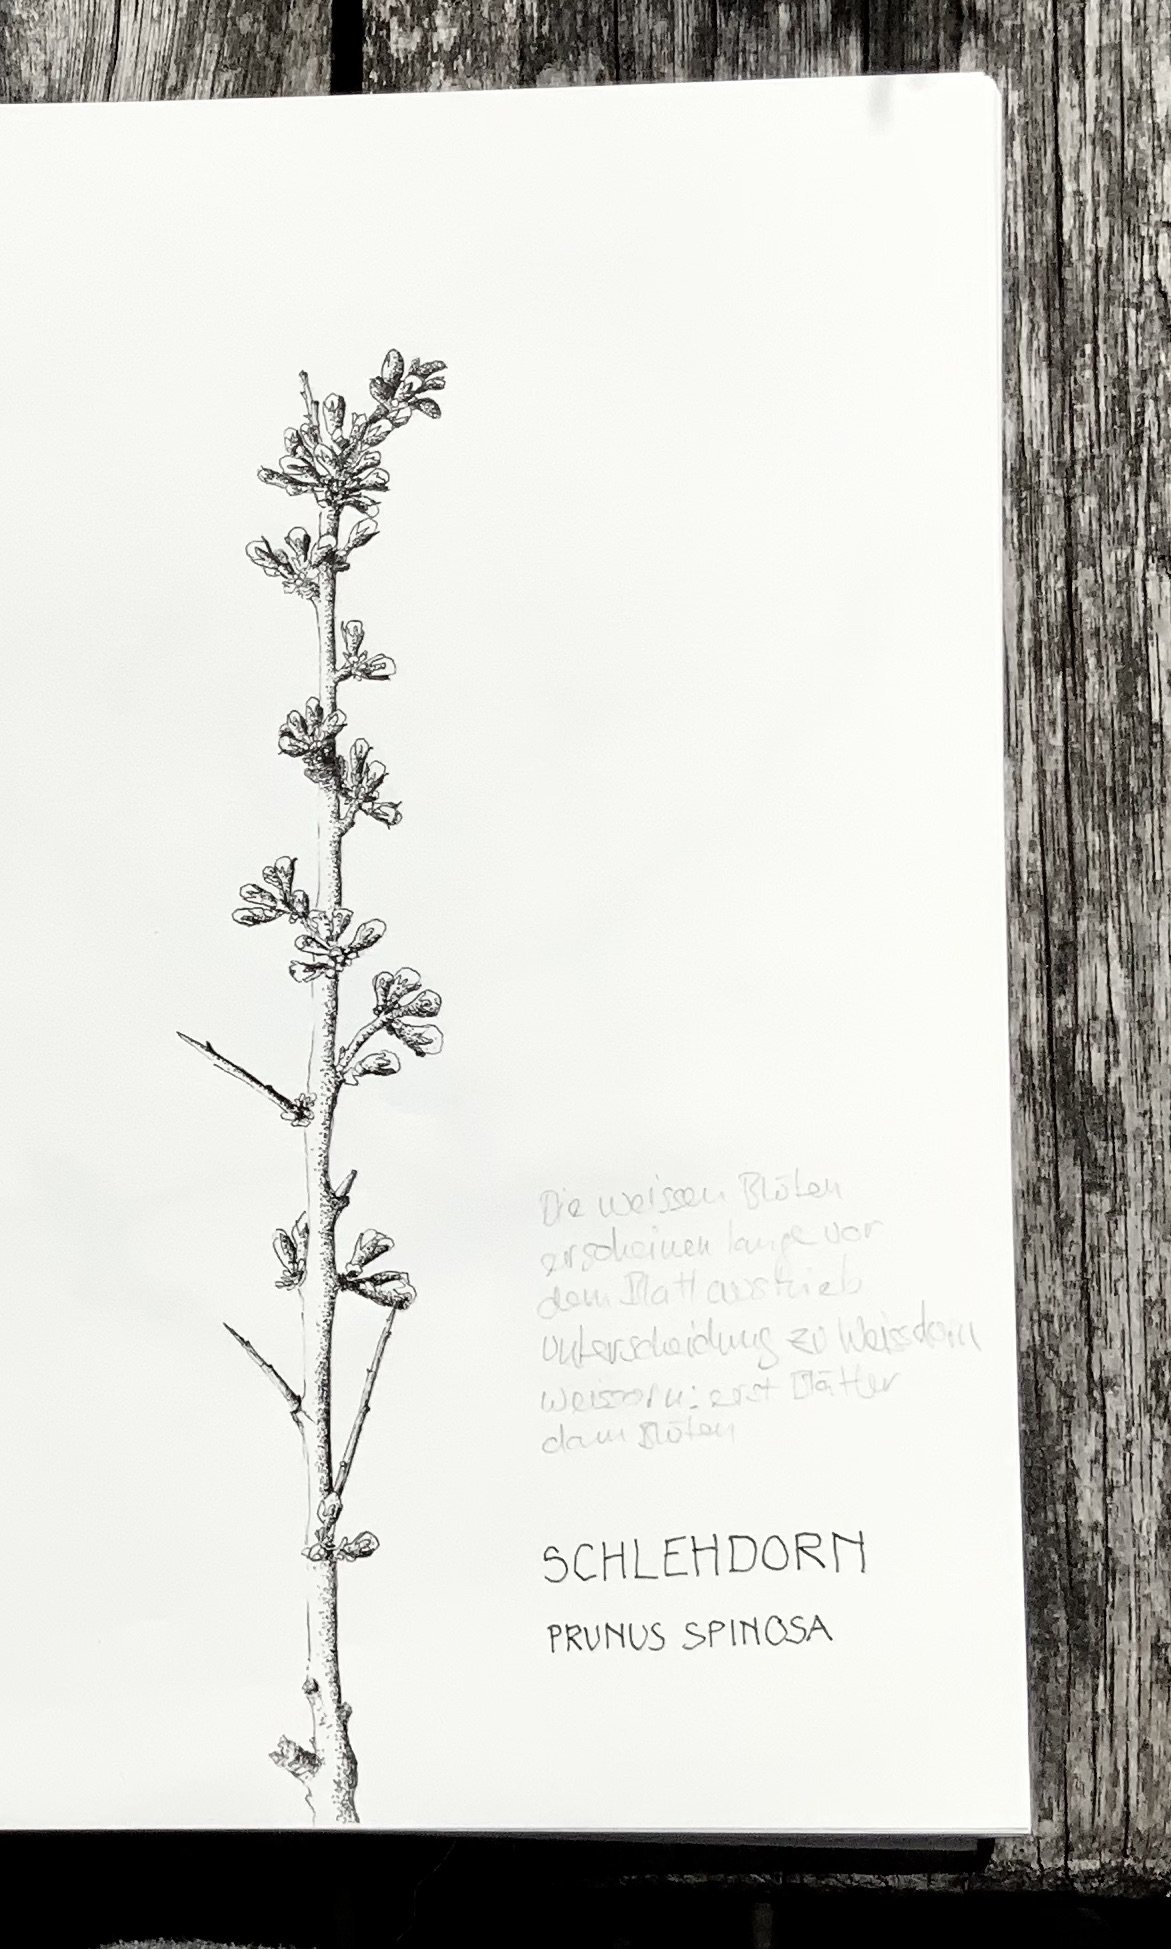 Die weissen Blüten
erscheinen lange vor
dem Blattaustrieb
Unterscheidung zu Weissdorn
Weissorn: erst Blätter
dann Blüten
SCHLEHDORN
PRUNUS SPINOSA